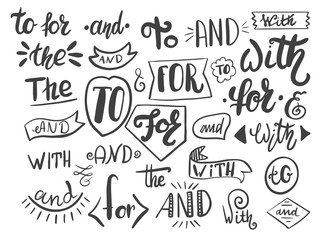 to for · and ·
To
AND
With
the
AND
FOR
TO
With
The
TO
&
for
&
AND
For
and
With
WITH
AND
the
WITH
to
and
for
AND
With
and